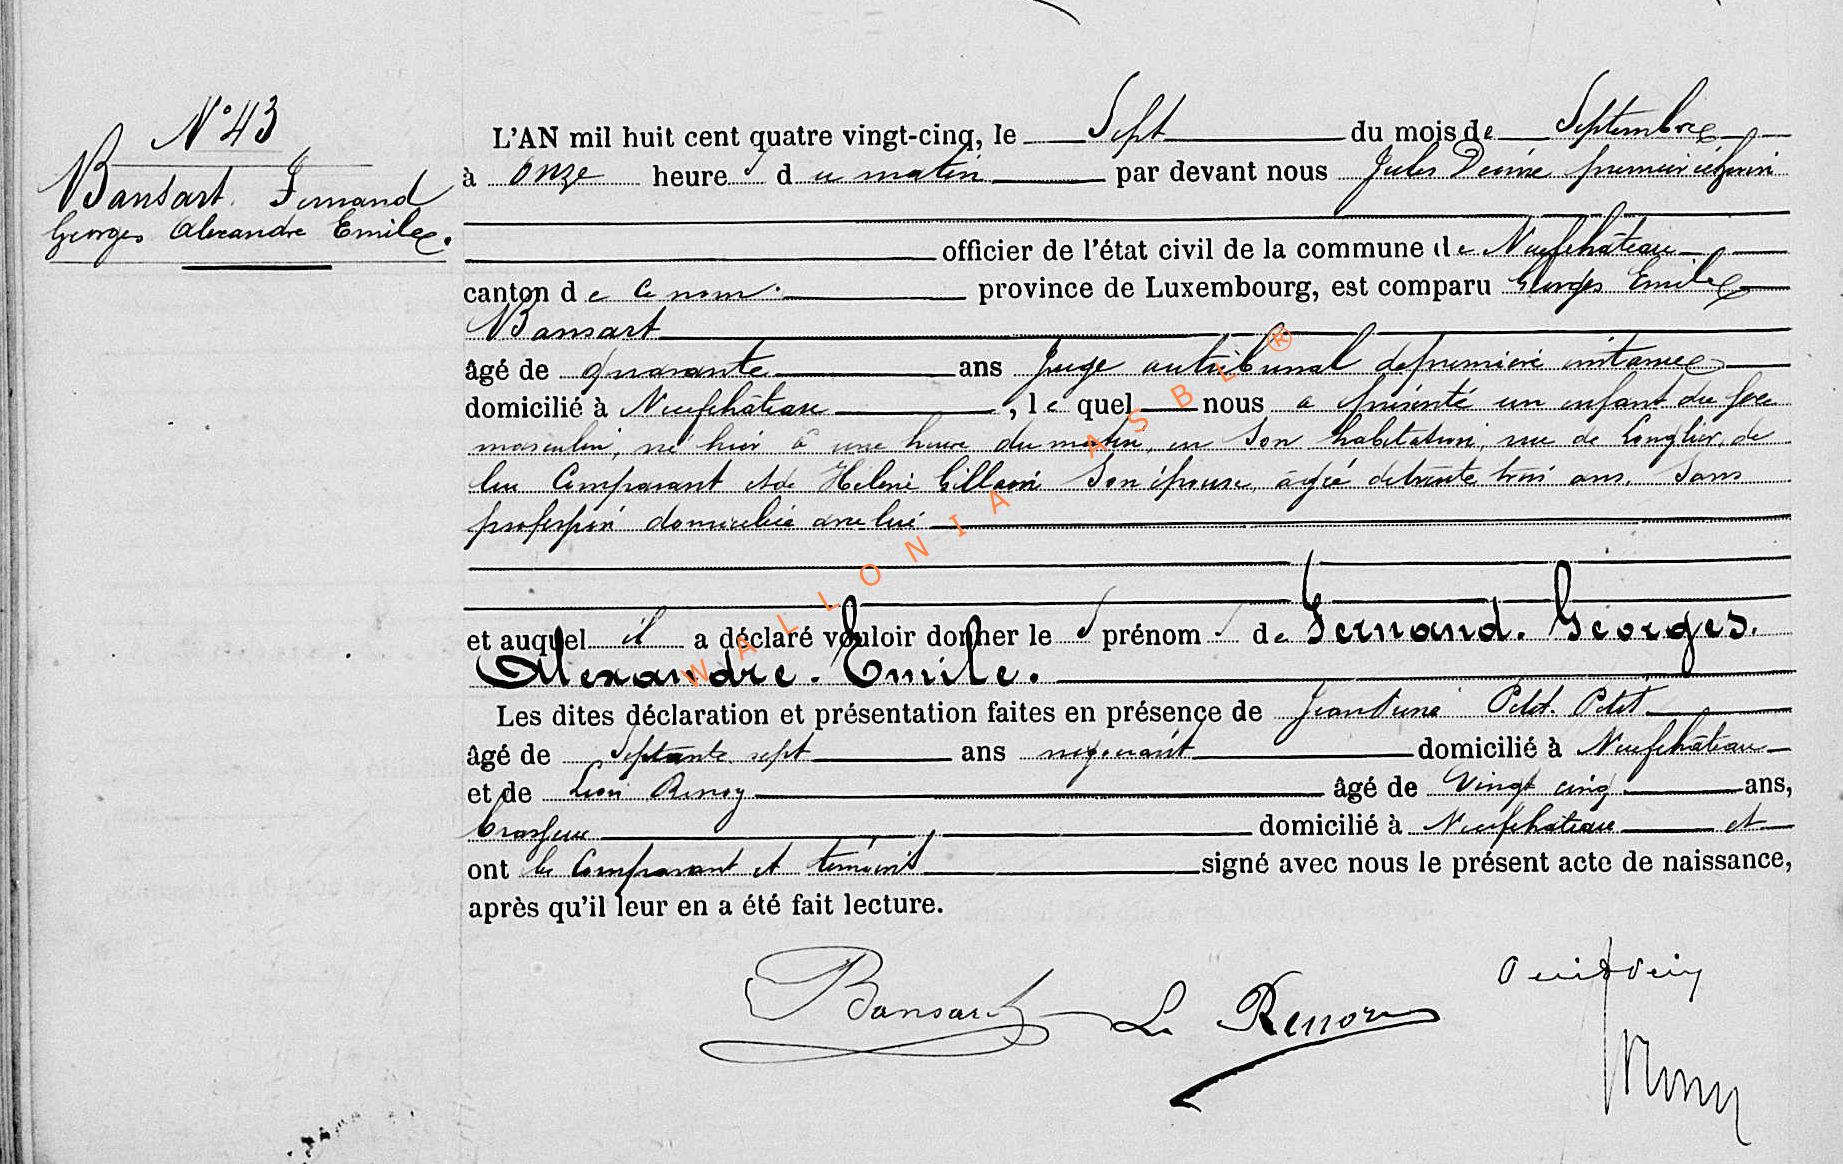 N° 43
Bansart. Fernand
Georges Alexandre Emile.
L'AN mil huit cent quatre vingt-cinq, le Sept du mois de Septembre
à onze heures du matin par devant nous Jules premier échevin
officier de l'état civil de la commune de Neufchâteau
canton de ce nom. province de Luxembourg, est comparu Georges Emile
Bansart
âgé de quarante ans Juge au tribunal de première instance
domicilié à Neufchâteau, lequel nous a présenté un enfant du sexe
masculin, né hier à une heure du matin, en son habitation, rue de Longlier, de
lui Comparant et de Hélène Gillain son épouse, âgée de trente trois ans, sans
profession domiciliée avec lui
et auquel il a déclaré vouloir donner les prénoms de Fernand. Georges.
Alexandre. Emile.
Les dites déclaration et présentation faites en présence de Petit
âgé de Septante sept ans négociant domicilié à Neufchâteau
et de Léon Renoy âgé de Vingt cinq ans,
brasseur domicilié à Neufchâteau et
ont les Comparant et témoins signé avec nous le présent acte de naissance,
après qu'il leur en a été fait lecture.
Bansart L. Renoy
WALLONIA ASBL ®